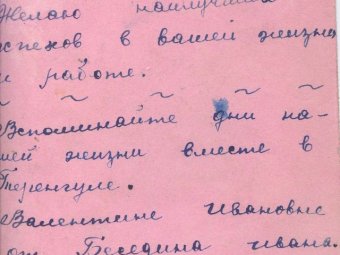 Желаю наилучших
успехов в вашей жизни
и работе.
Вспоминайте дни на-
шей жизни вместе в
Теренгуле.
Валентине Ивановне
от Беседина Ивана.